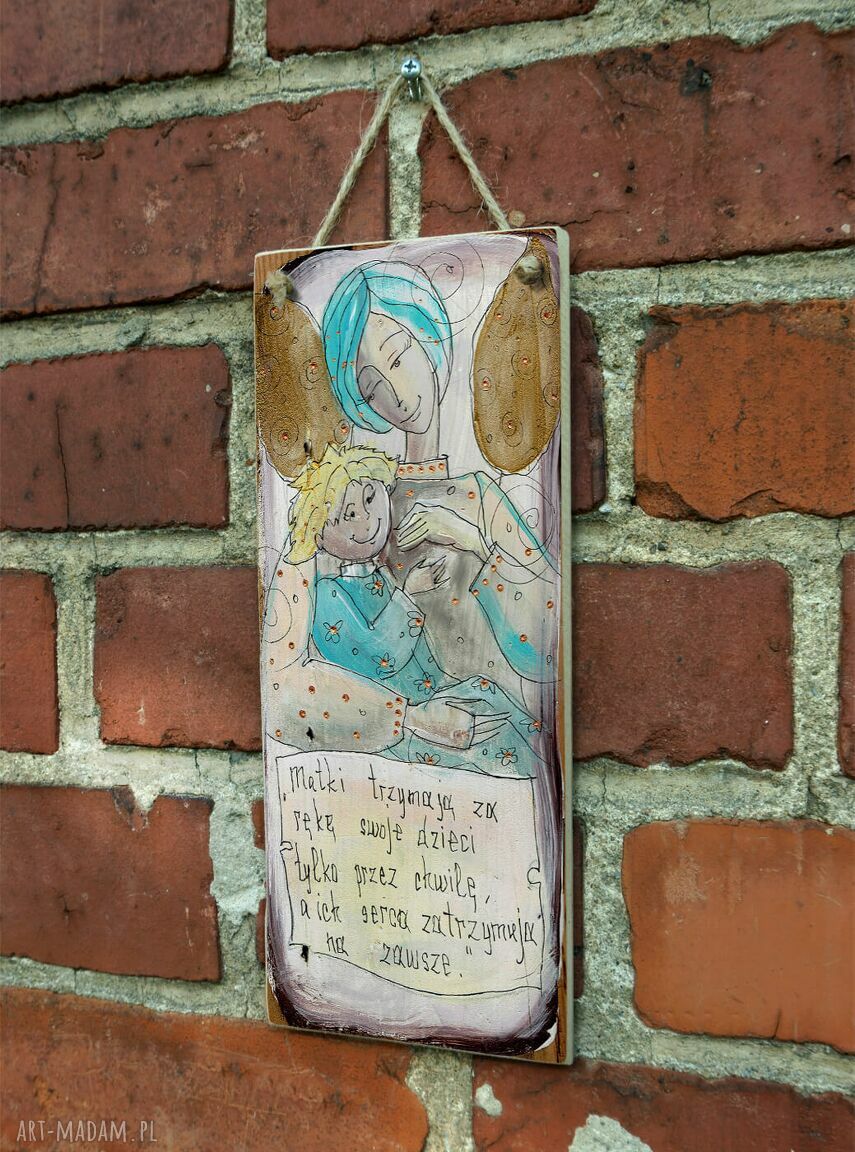 Matki trzymają za
rękę swoje dzieci
tylko przez chwilę,
a ich serca zatrzymują
na zawsze."
ART-MADAM.PL